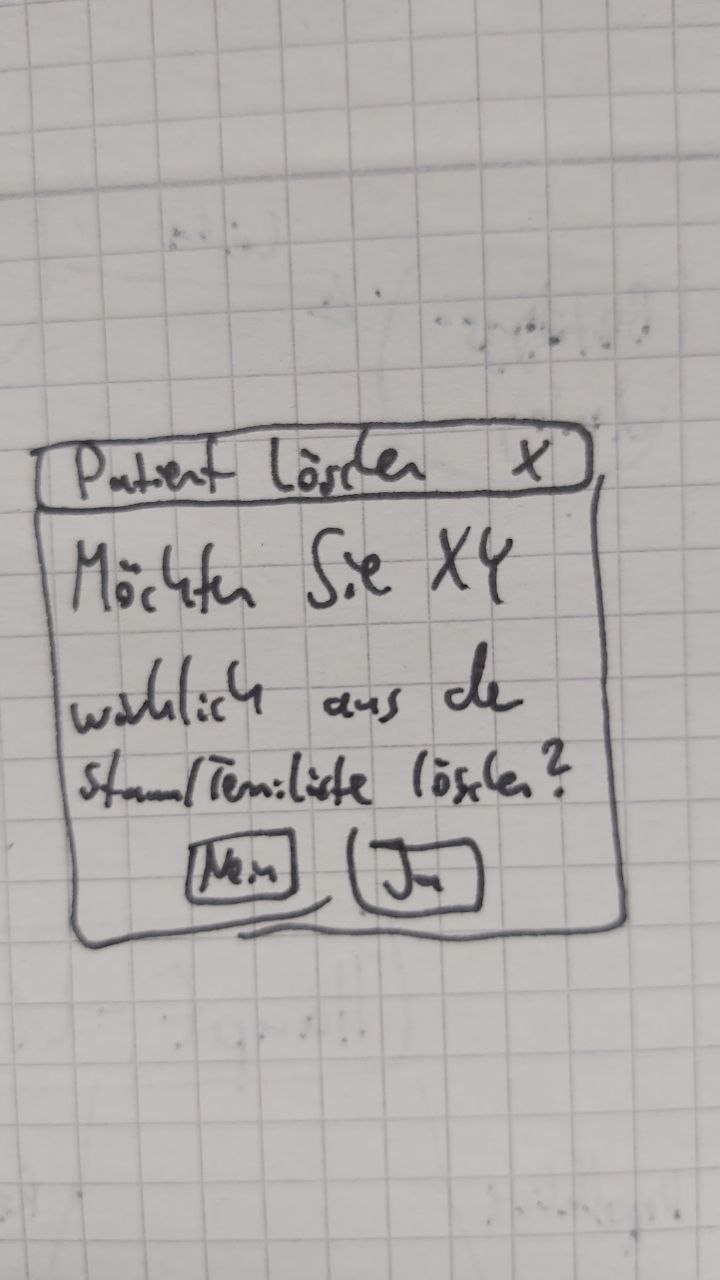 Patient löschen X
Möchten Sie XY
wirklich aus der
Stamm/Terminliste löschen?
Nein Ja